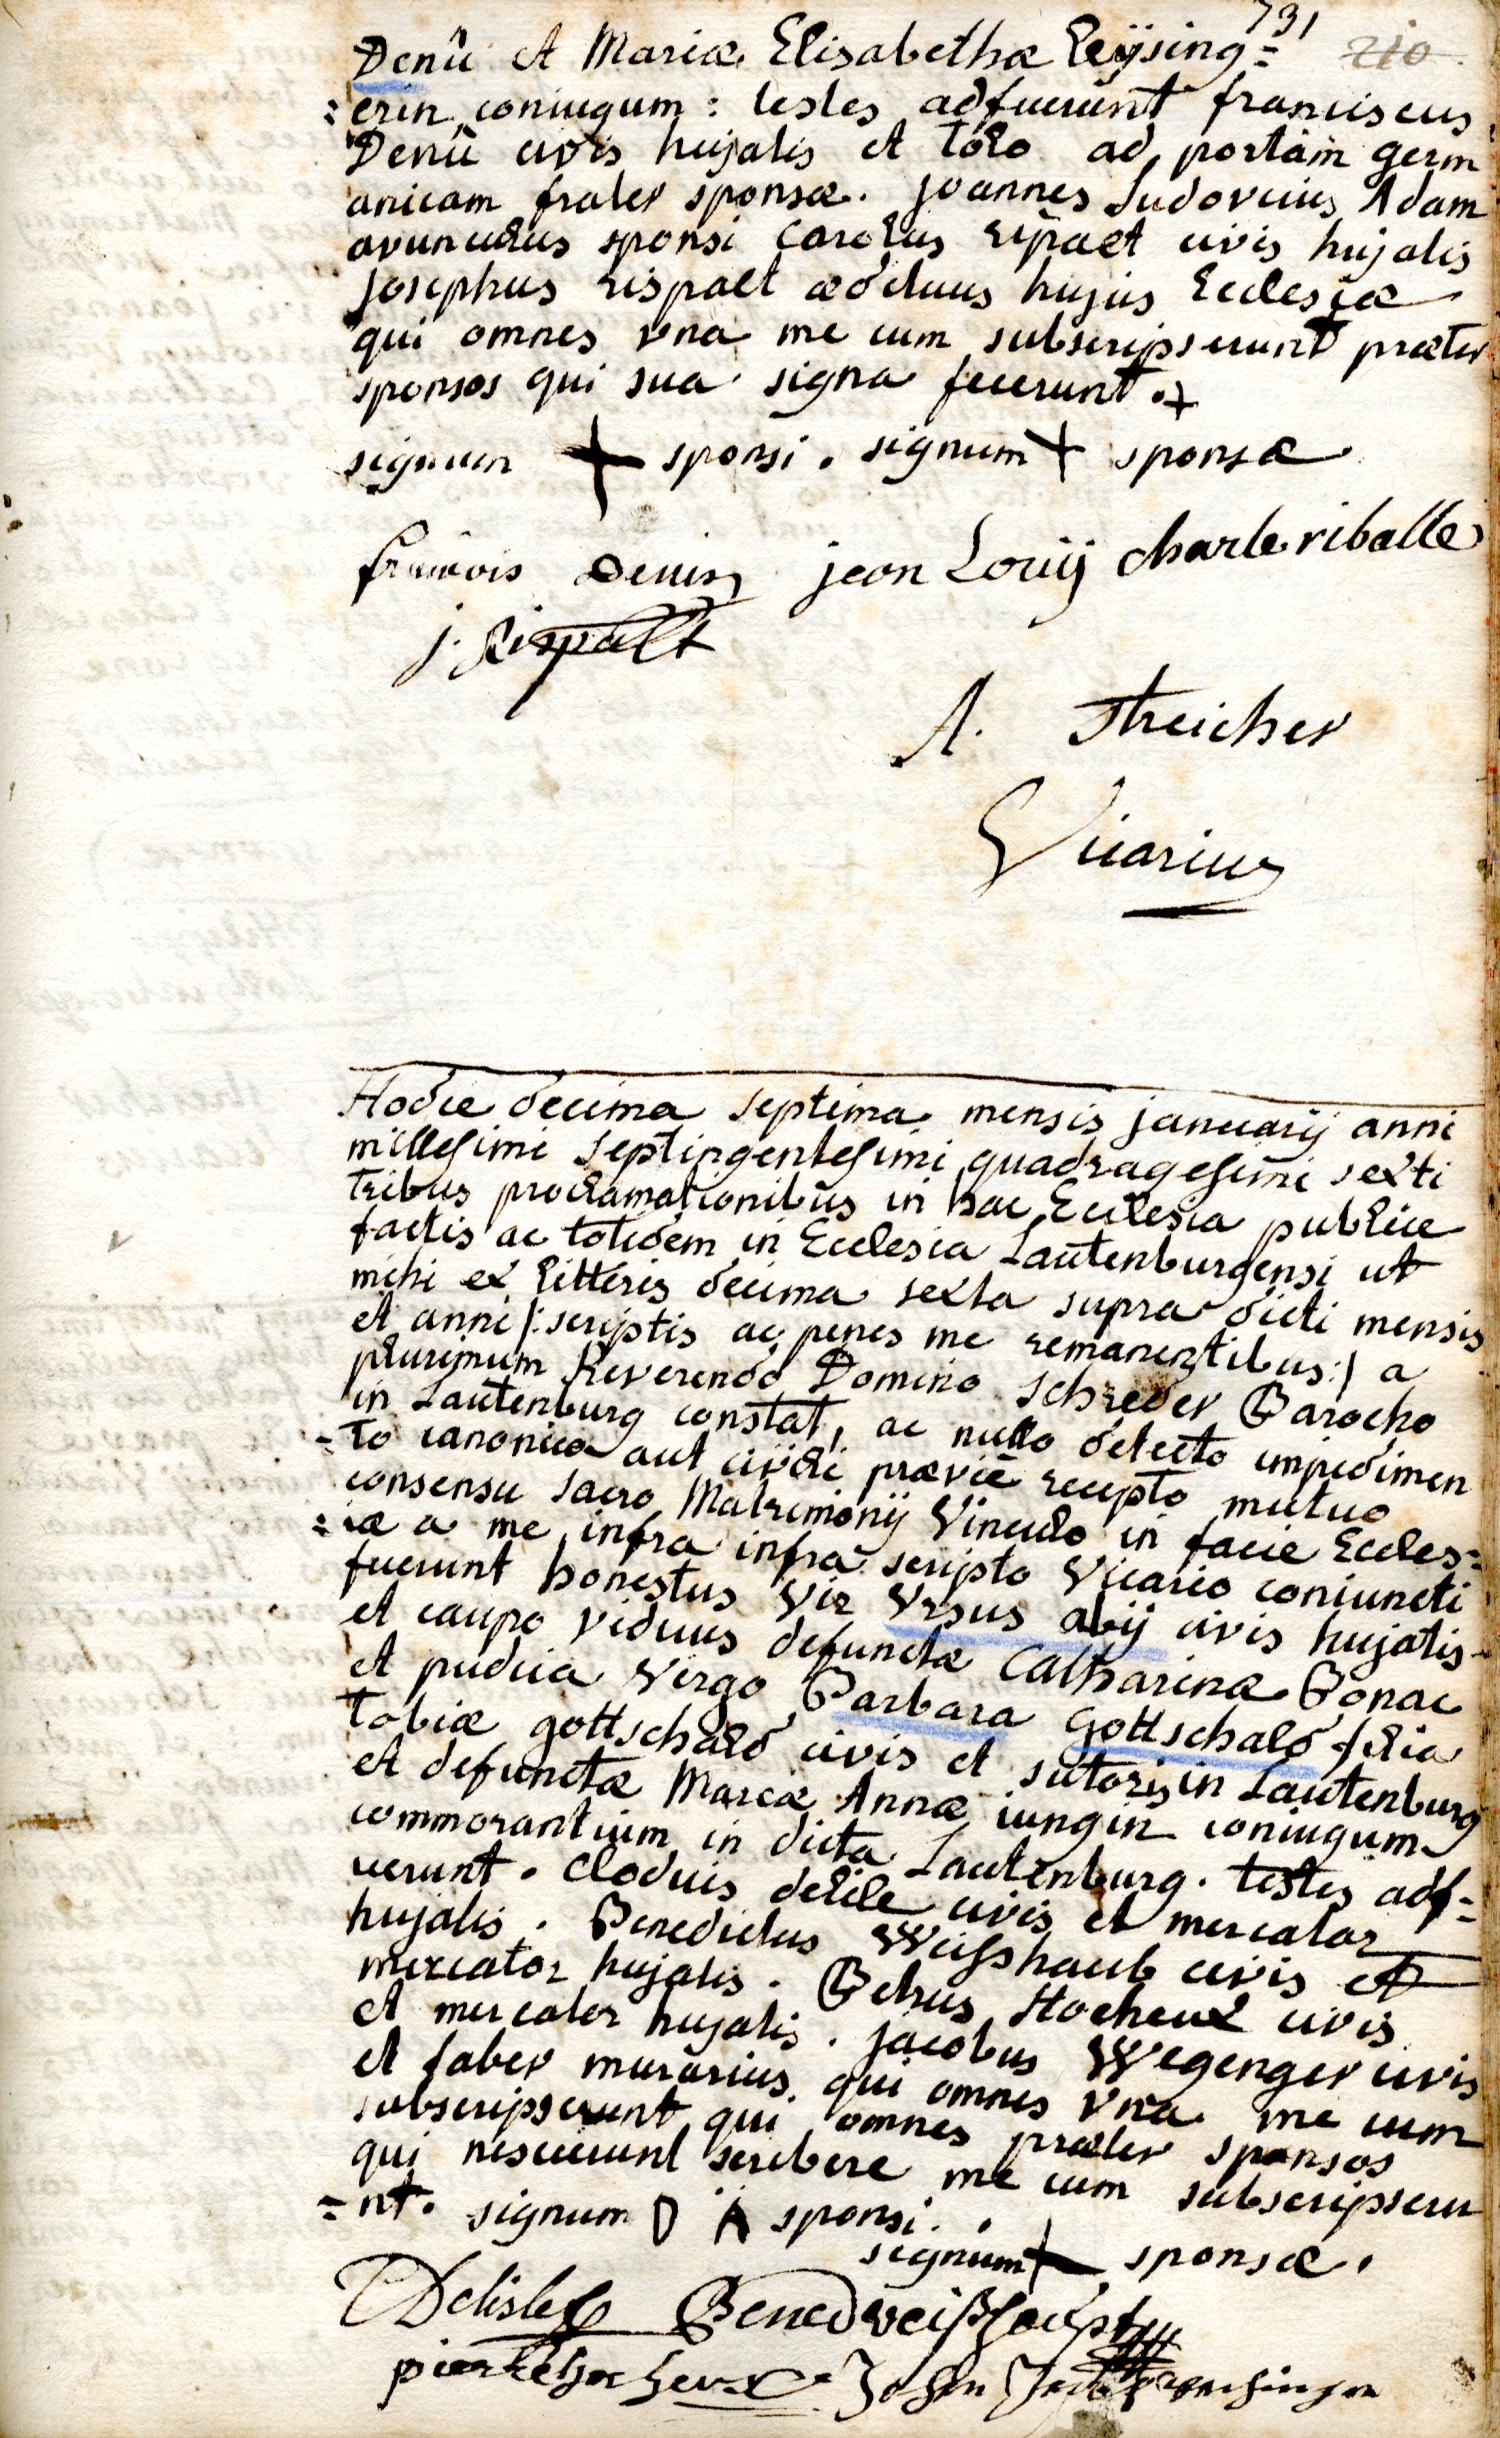 731 210
Denû et Mariæ Elisabethæ Leÿsing=
=erin coniugum : testes adfuerunt franciscus
Denû civis hujatis et tolo ad portam germ
anicam frater sponsæ. joannes Ludovicus Adam
avunculus sponsi carolus rispalt civis hujatis
josephus rispalt ædituus hujus Ecclesiæ
qui omnes vna me cum subscripserunt præter
sponsos qui sua signa fecerunt.
signum + sponsi . signum + sponsæ
françois Denis jean Louÿ charle riballe
j. Rispalt
A. Streicher
Vicarius
Hodie decima septima mensis januarij anni
millesimi septingentesimi quadragesimi sexti
tribus proclamationibus in hac Ecclesia publice
factis ac totidem in Ecclesia Lautenburgensi ut
mihi ex litteris decima sexta supra dicti mensis
et anni /: scriptis ac penes me remanentibus :/ a
plurimum Reverendo Domino Schreder Parocho
in Lautenburg constat, ac nullo detecto impedimen
=to canonico aut civili prævie recepto mutuo
consensu sacro Matrimonij Vinculo in facie Eccles=
=iæ a me infra infra scripto Vicario coniuncti
fuerunt honestus Vir Vrsus abij civis hujatis
et caupo viduus defunctæ Catharinæ Bonac
et pudica Virgo Barbara Gottschald filia
Tobiæ gottschald civis et sutoris in Lautenburg
et defunctæ Mariæ Annæ iungin coniugum
commorantium in dicta Lautenburg. testes adf=
uerunt. Clodius delile civis et mercator
hujatis. Benedictus Weisshaub civis et
mercator hujatis. Petrus Hocheux civis
et mercator hujatis. jacobus Wegenger civis
et faber murarius. qui omnes vna me cum
subscripserunt qui omnes præter sponsos
qui nesciverunt scribere me cum subscripseru
=nt. signum D A sponsi.
signum + sponsæ.
CDelisle Bened Weißhaupt
pierre hocheux Johan Jacob